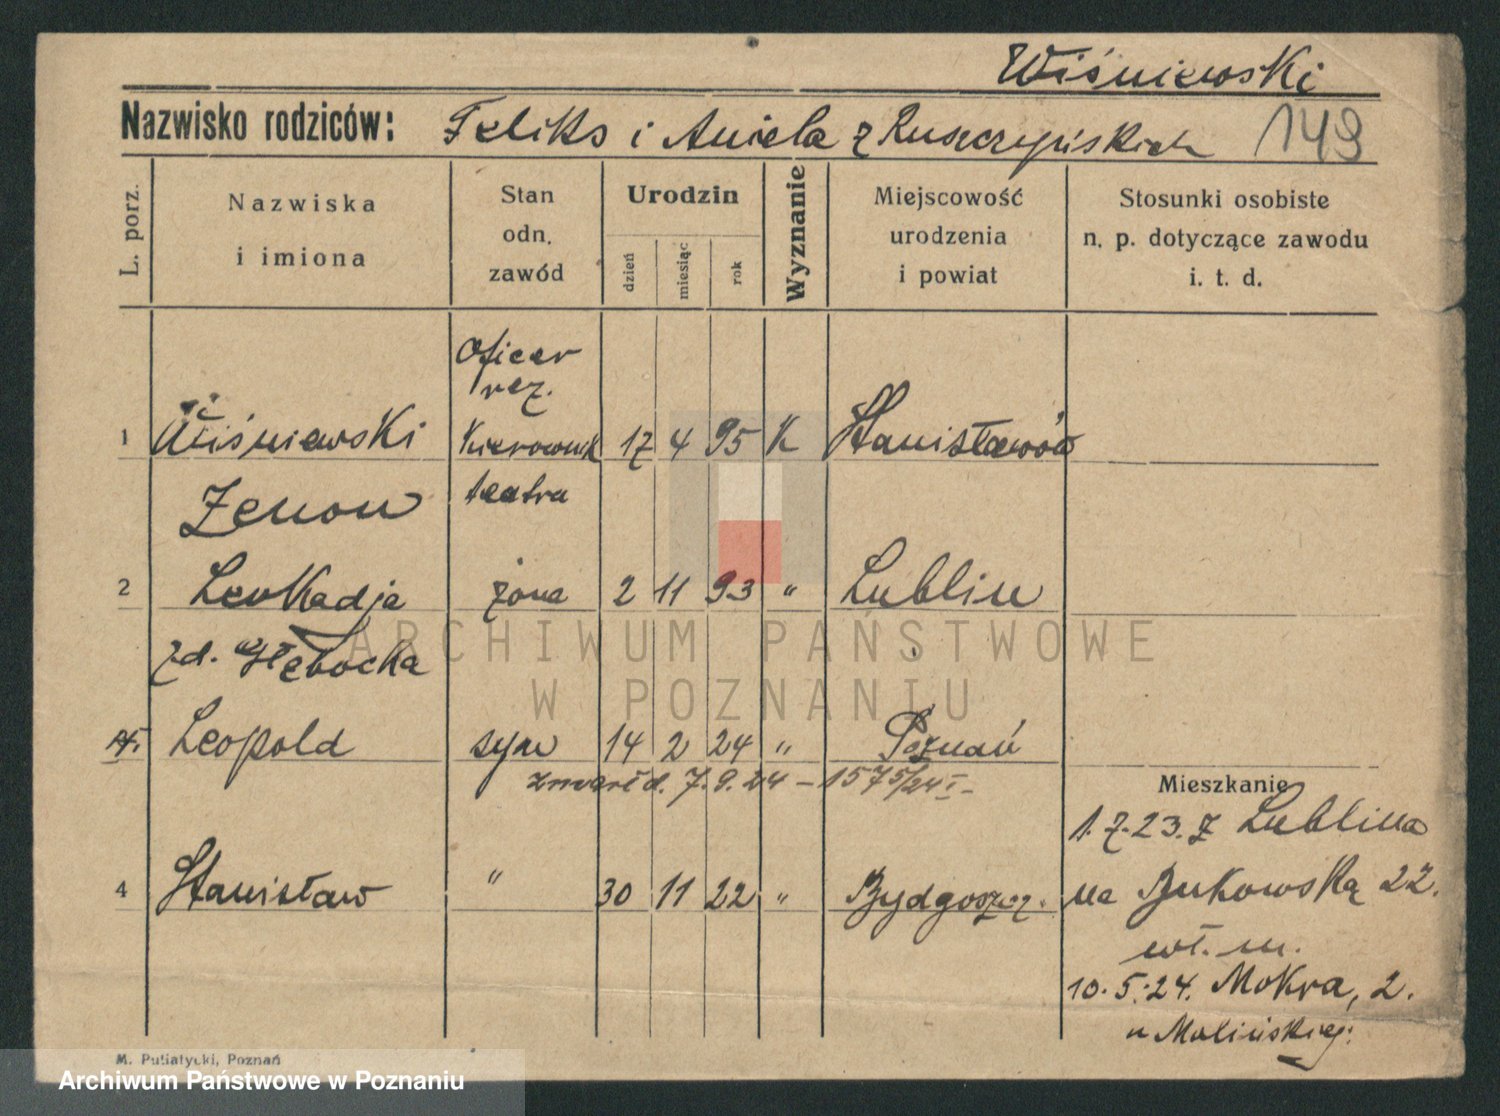 Wiśniewski
Nazwisko rodziców: Feliks i Aniela z Ruszczyńskich 149
L. porz.
Nazwiska i imiona
Stan odn. zawód
Urodzin
dzień miesiąc rok
Wyznanie
Miejscowość urodzenia i powiat
Stosunki osobiste n. p. dotyczące zawodu i. t. d.
Oficer
rez.
1 Wiśniewski Kierownik 17 4 95 K Stanisławów
Zenon teatra
2 Leokadja żona 2 11 93 " Lublin
zd. Głębocka
ARCHIWUM PAŃSTWOWE
W POZNANIU
Leopold syn 14 2 24 " Poznań
zmarł d. 7.9.24 - 1575/24 I -
Mieszkanie
1.7.23. z Lublina
4 Stanisław " 30 11 22 " Bydgoszcz. na Bukowską 22.
wł. m.
10.5.24. Mokra, 2.
u Malińskiej.
M. Putiatycki, Poznań
Archiwum Państwowe w Poznaniu